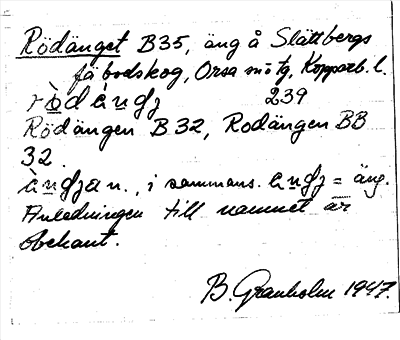 Rödänget B35, äng å Slättbergs
fäbodskog, Orsa sn o tg, Kopparb. l.
rò̱dàṉdz 239
Rödängen B 32, Rodängen BB
32.
àṉdzan., i sammans. aṉdz = äng.
Anledningen till namnet är
obekant.
B. Granholm 1947.